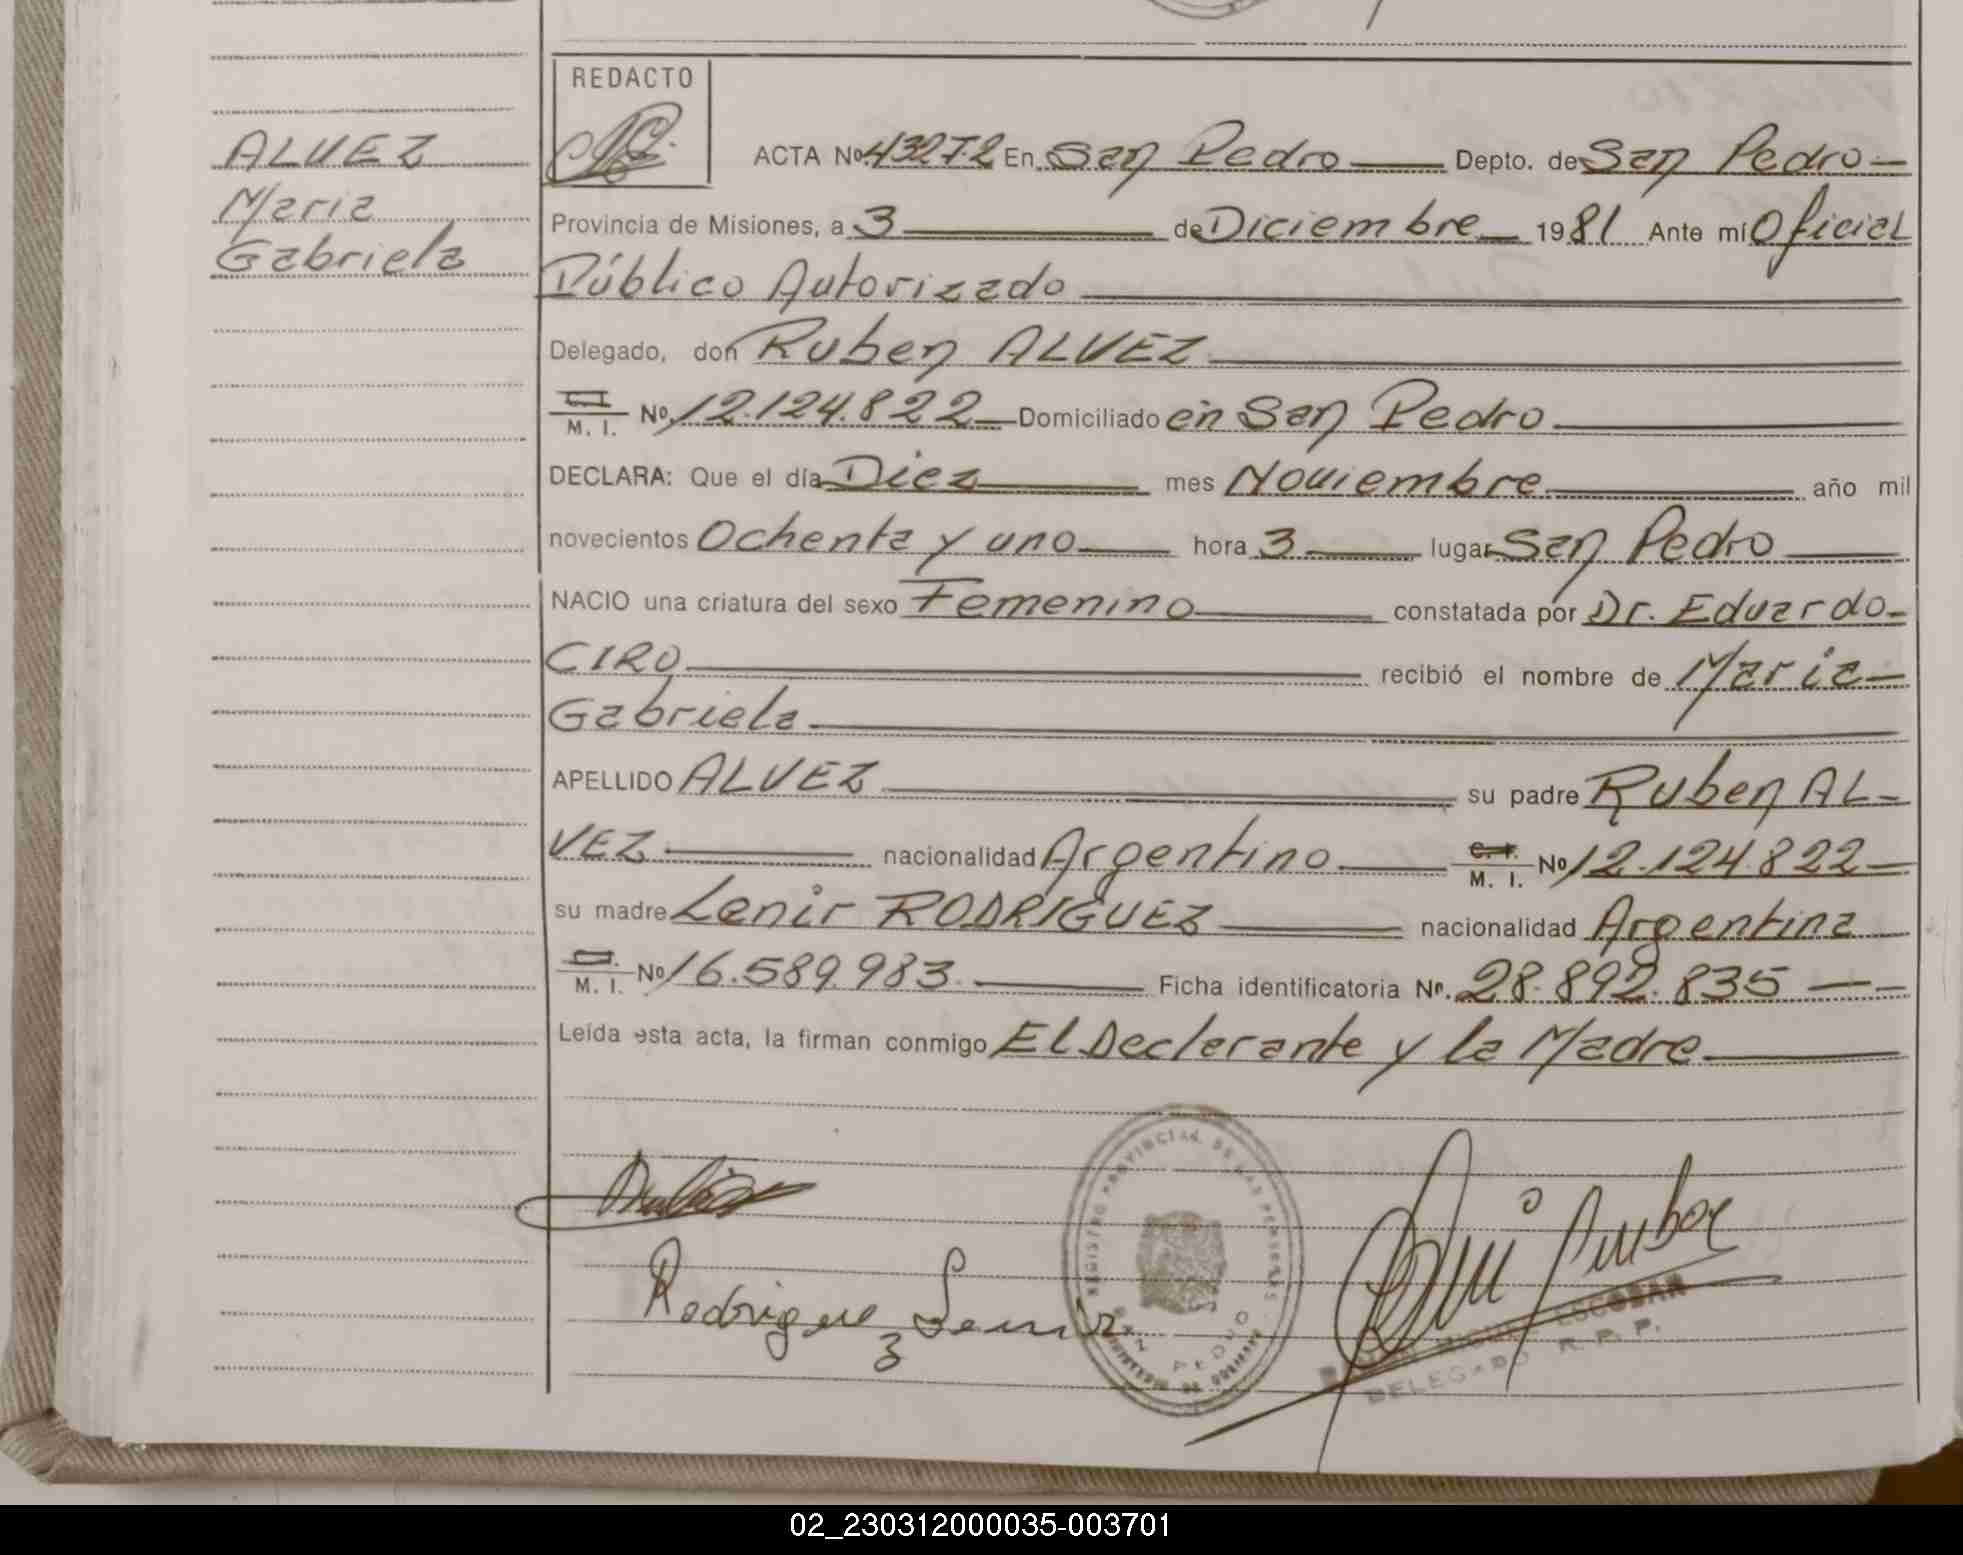 REDACTO
ALVEZ
Maria
Gabriela
ACTA Nº 432T2 En San Pedro Depto. de San Pedro
Provincia de Misiones, a 3 de Diciembre 1981 Ante mí Oficial
Público Autorizado
Delegado, don Ruben ALVEZ
C. I.
M. I. Nº 12.124.822 Domiciliado en San Pedro
DECLARA: Que el día Diez mes Noviembre año mil
novecientos Ochenta y uno hora 3 lugar San Pedro
NACIO una criatura del sexo Femenino constatada por Dr. Eduardo
CIRO recibió el nombre de Maria
Gabriela
APELLIDO ALVEZ su padre Ruben AL-
VEZ nacionalidad Argentino C. I. M. I. Nº 12.124.822
su madre Lenir RODRIGUEZ nacionalidad Argentina
M. I. Nº 16.589.983 Ficha identificatoria Nº. 28.892.835
Leída esta acta, la firman conmigo El Declarante y la Madre
REGISTRO PROVINCIAL DE LAS PERSONAS
SAN PEDRO
Rodriguez Lenir
ESCOBAR
DELEGADO R. P. P.
02_230312000035-003701